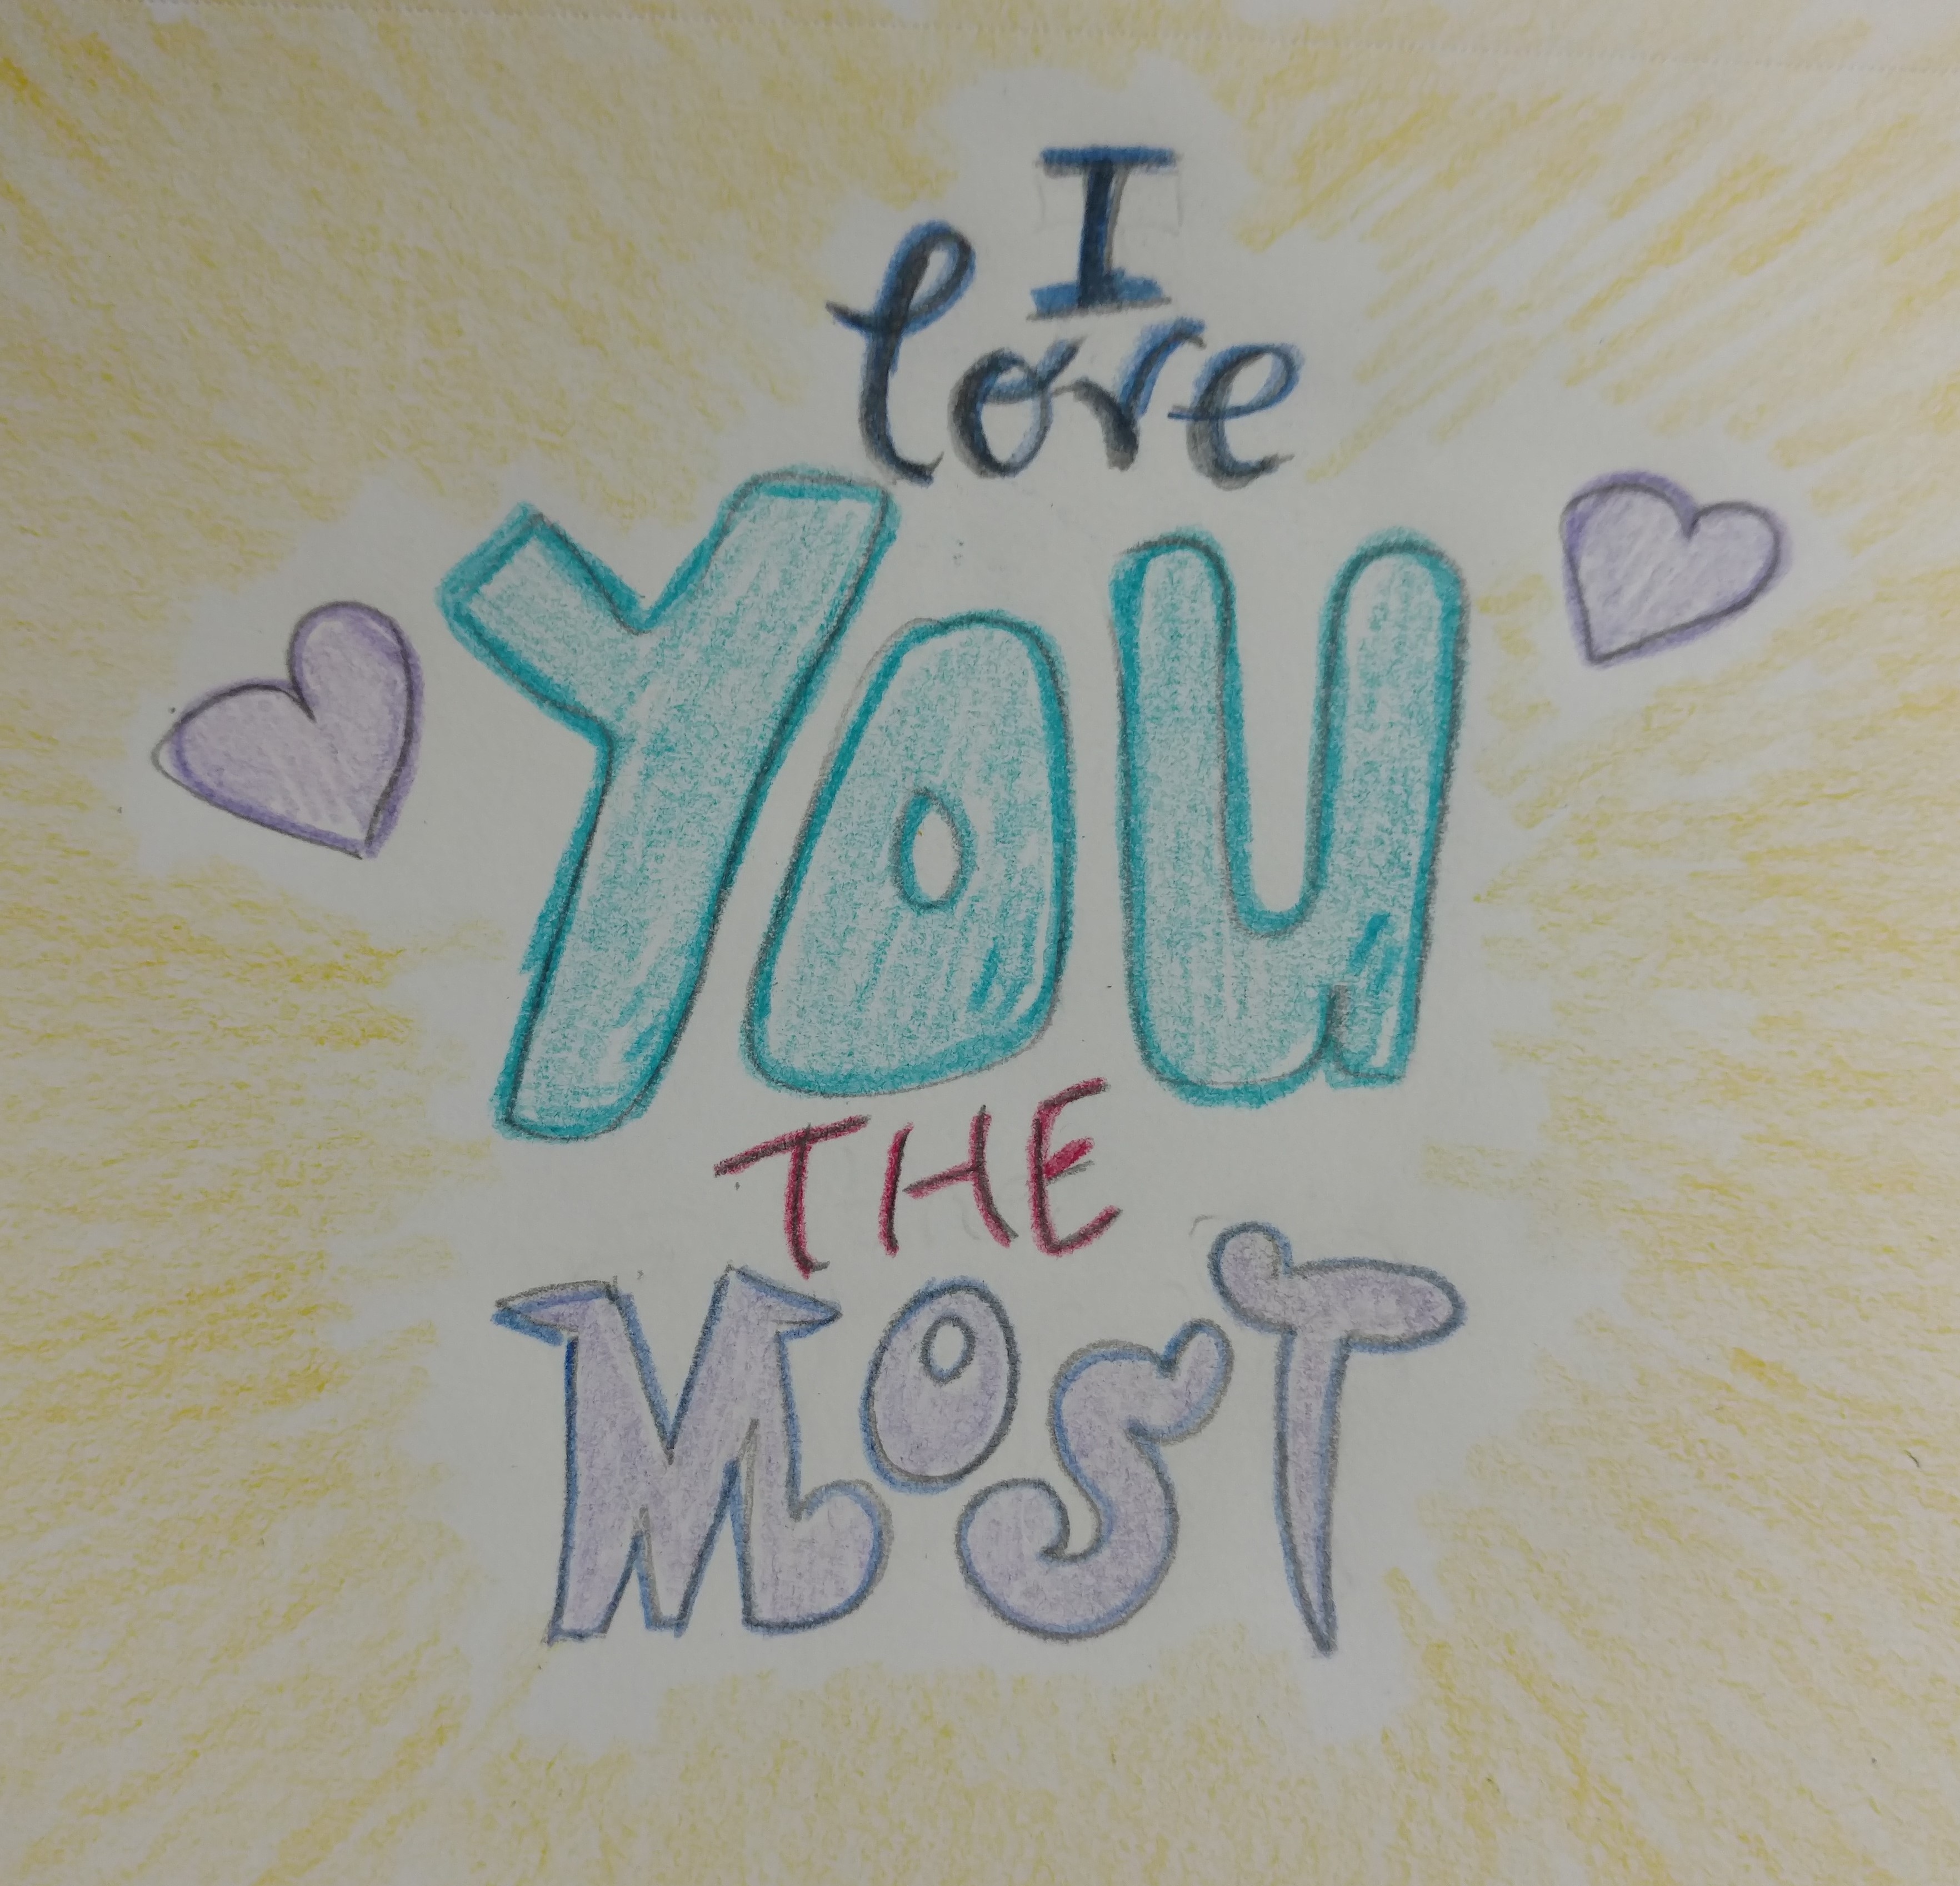 I
love
YOU
THE
MOST